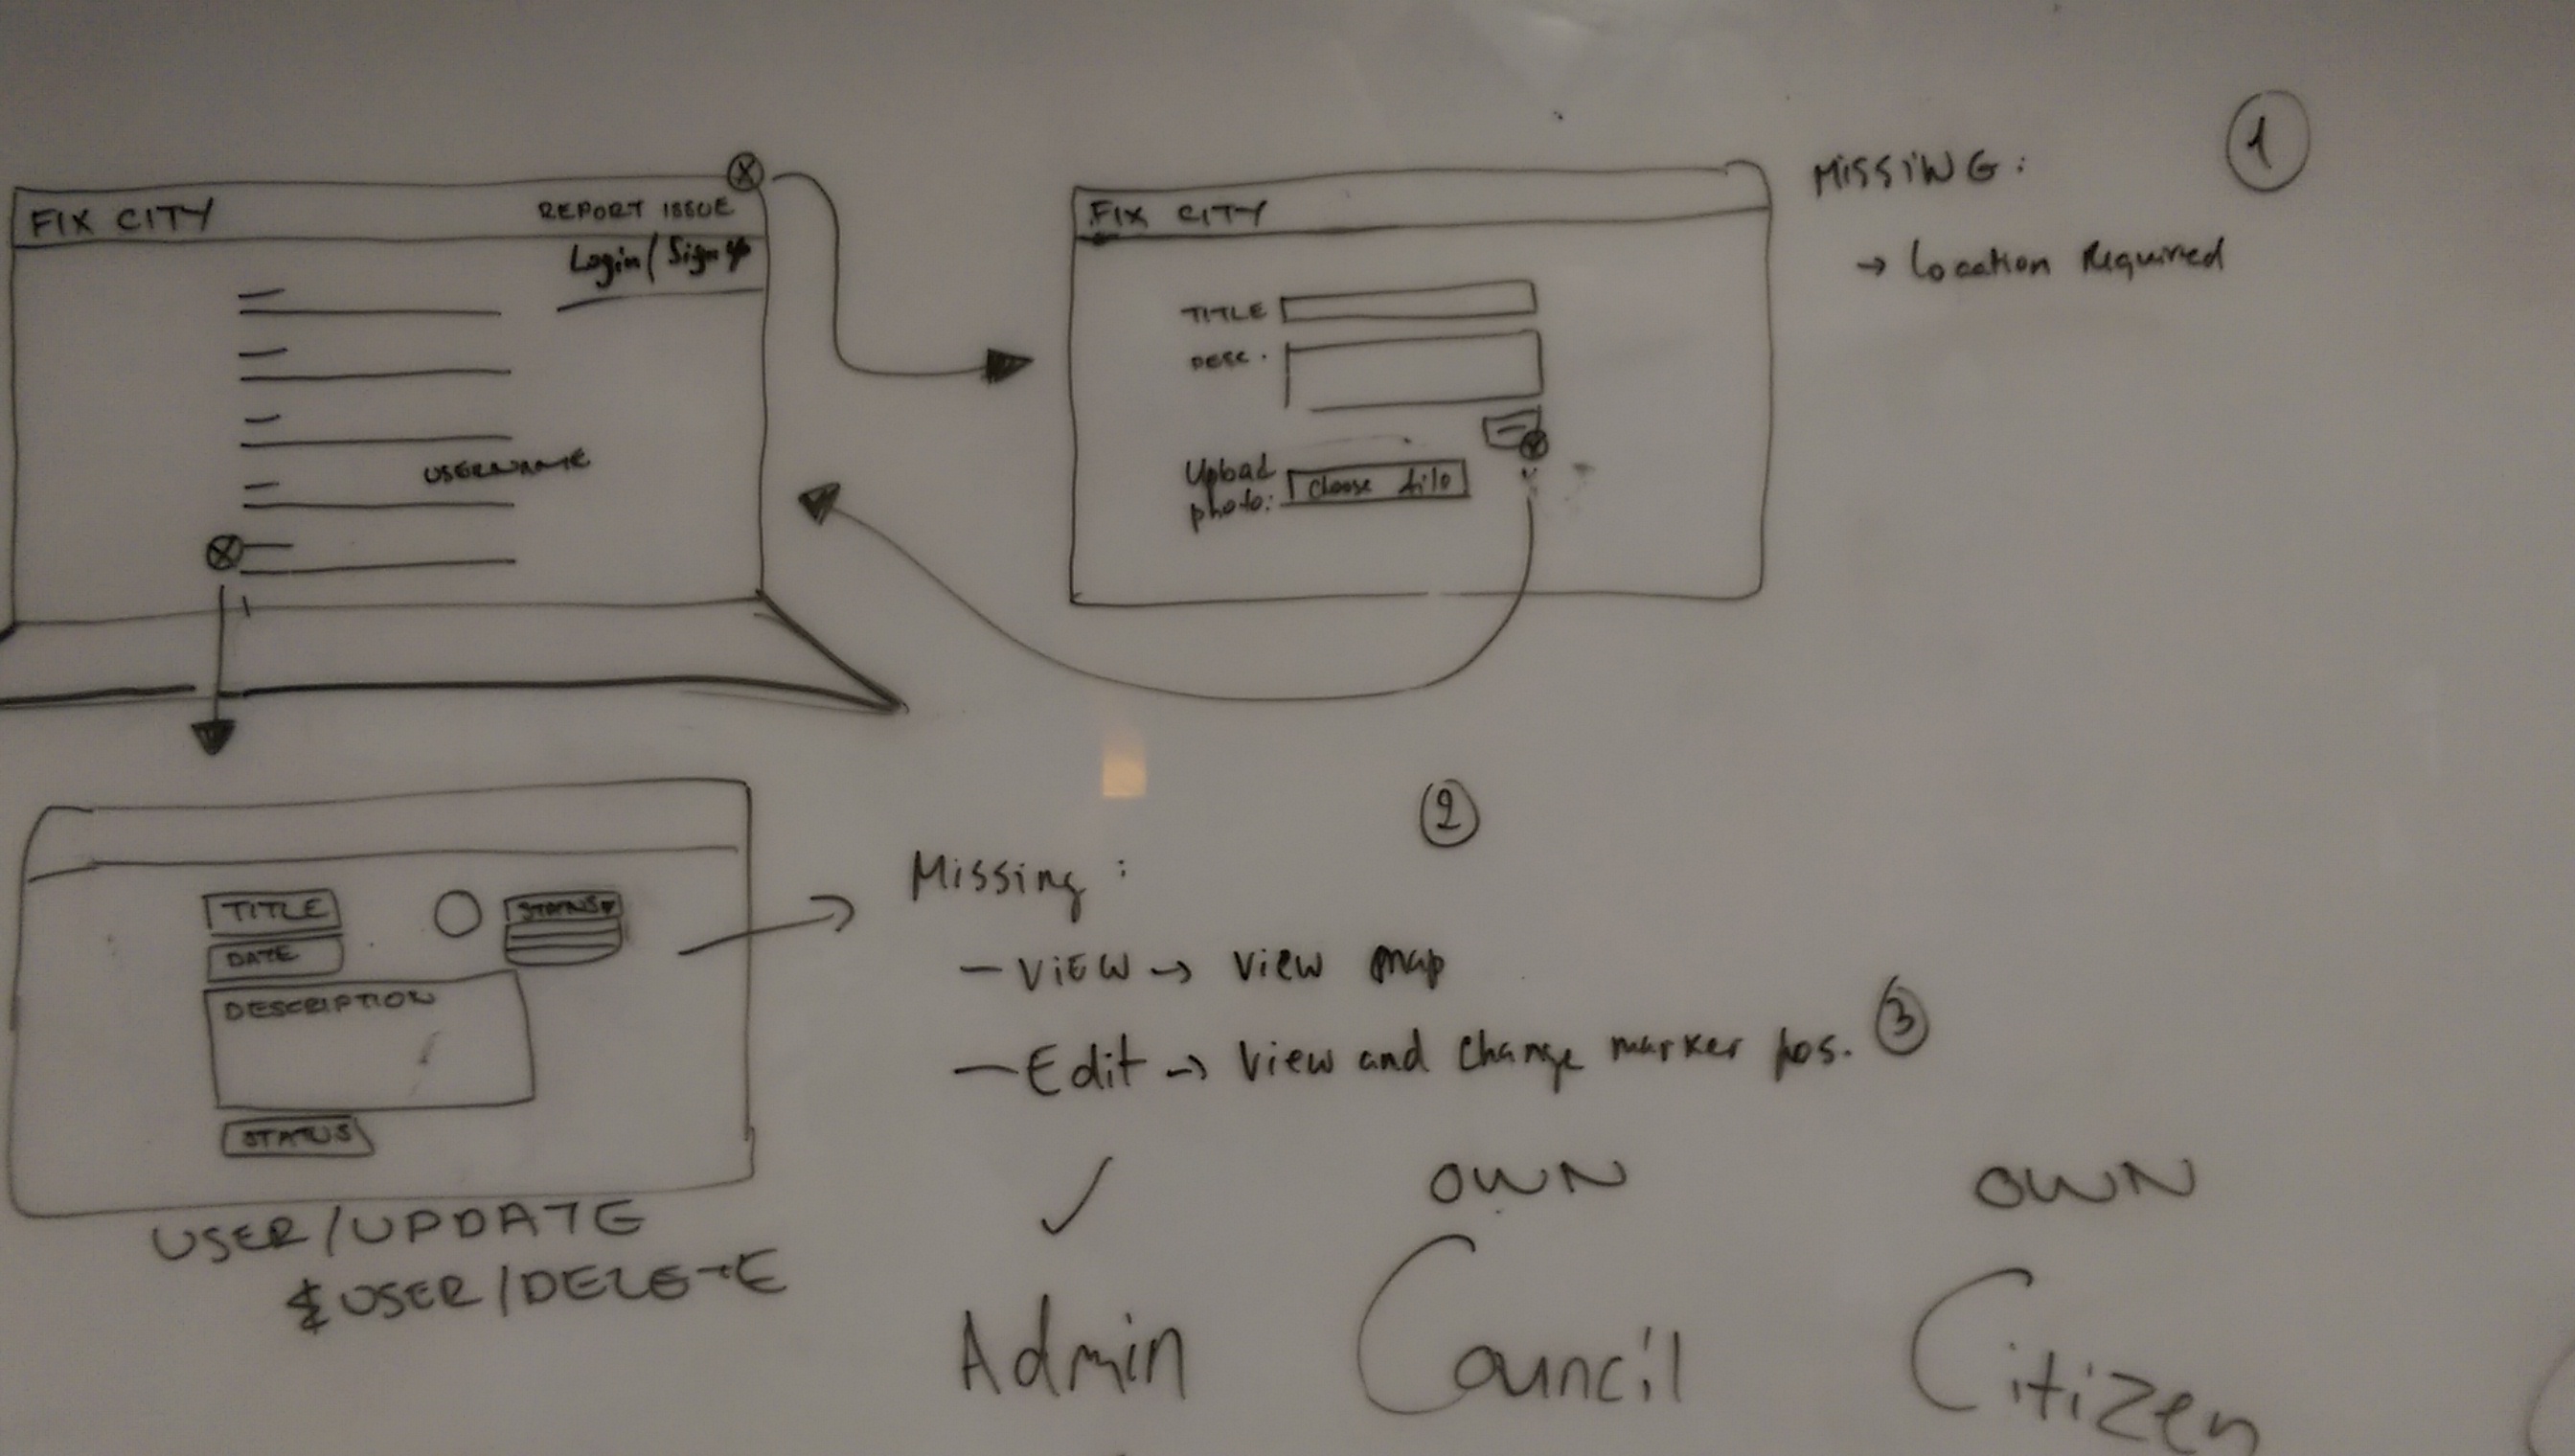 FIX CITY
REPORT ISSUE
Login/Signup
USERNAME
FIX CITY
TITLE
DESC.
Upload
photo:
choose file
MISSING:
1
→ Location Required
TITLE
DATE
DESCRIPTION
STATUS
STATUS
USER/UPDATE
& USER/DELETE
2
Missing:
— VIEW → View map
— Edit → View and change marker pos. 3
✓ OWN OWN
Admin Council Citizen